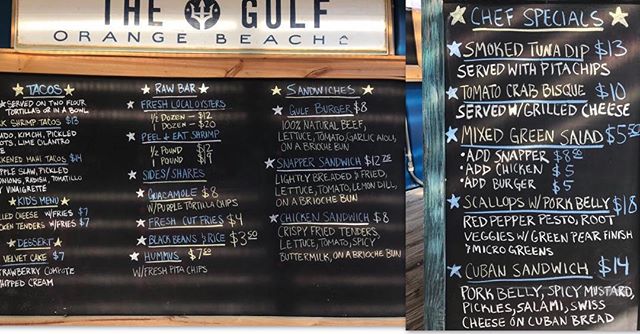 THE GULF
ORANGE BEACH
TACOS
SERVED ON TWO FLOUR
TORTILLAS OR IN A BOWL
SHRIMP TACOS $13
KIMCHI, PICKLED
LIME CILANTRO
MAHI TACOS $14
SLAW, PICKLED
ONIONS, RADISH, TOMATILLO
VINAIGRETTE
KID'S MENU
CHEESE W/FRIES $7
CHICKEN TENDERS W/FRIES $7
DESSERT
VELVET CAKE $7
STRAWBERRY COMPOTE
WHIPPED CREAM
RAW BAR
FRESH LOCAL OYSTERS
1/2 DOZEN - $12
1 DOZEN - $20
PEEL & EAT SHRIMP
1/2 POUND $12
1 POUND $19
SIDES/SHARES
GUACAMOLE $8
W/PURPLE TORTILLA CHIPS
FRESH CUT FRIES $4
BLACK BEANS & RICE $3.50
HUMMUS $7.00
W/FRESH PITA CHIPS
SANDWICHES
GULF BURGER $8
100% NATURAL BEEF,
LETTUCE, TOMATO, GARLIC AIOLI,
ON A BRIOCHE BUN
SNAPPER SANDWICH $12
LIGHTLY BREADED & FRIED,
LETTUCE, TOMATO, LEMON DILL,
ON A BRIOCHE BUN
CHICKEN SANDWICH $8
CRISPY FRIED TENDERS
LETTUCE, TOMATO, SPICY
BUTTERMILK, ON A BRIOCHE BUN
CHEF SPECIALS
SMOKED TUNA DIP $13
SERVED WITH PITA CHIPS
TOMATO CRAB BISQUE $10
SERVED W/GRILLED CHEESE
MIXED GREEN SALAD $5.50
• ADD SNAPPER $8.50
• ADD CHICKEN $5
• ADD BURGER $5
SCALLOPS W/ PORK BELLY $18
RED PEPPER PESTO, ROOT
VEGGIES W/GREEN PEAR FINISH
& MICRO GREENS
CUBAN SANDWICH $14
PORK BELLY, SPICY MUSTARD,
PICKLES, SALAMI, SWISS
CHEESE ON CUBAN BREAD